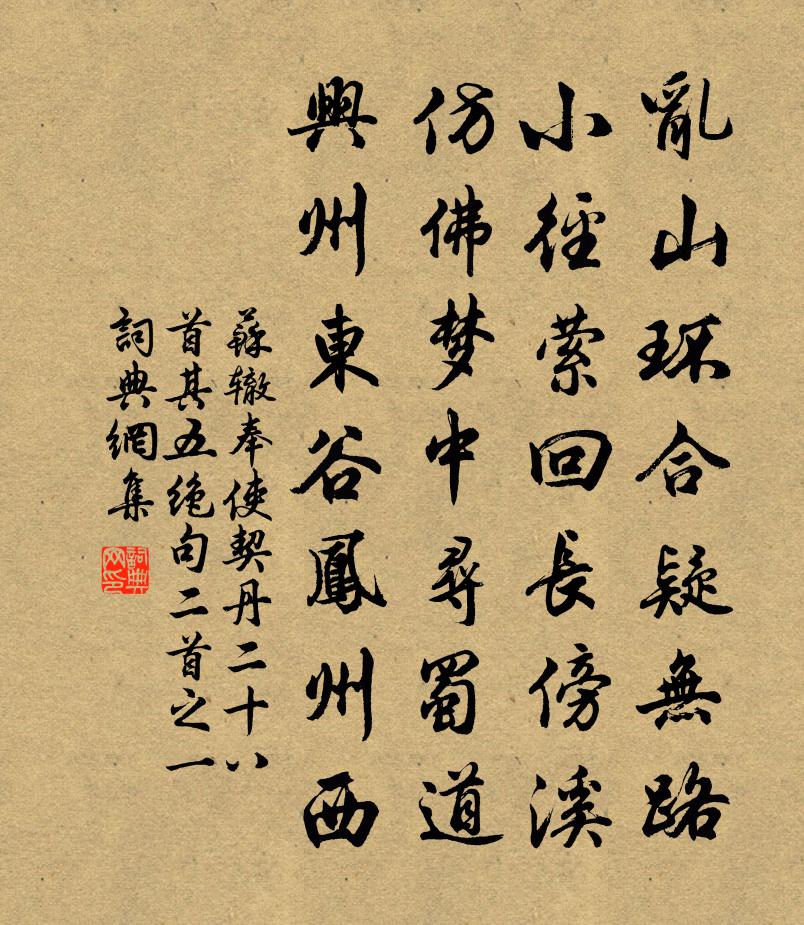 亂山环合疑無路
小徑萦回長傍溪
仿佛梦中尋蜀道
興州東谷鳳州西
蘇辙奉使契丹二十八
首其五绝句二首之一
詞典網集
詞典
网印